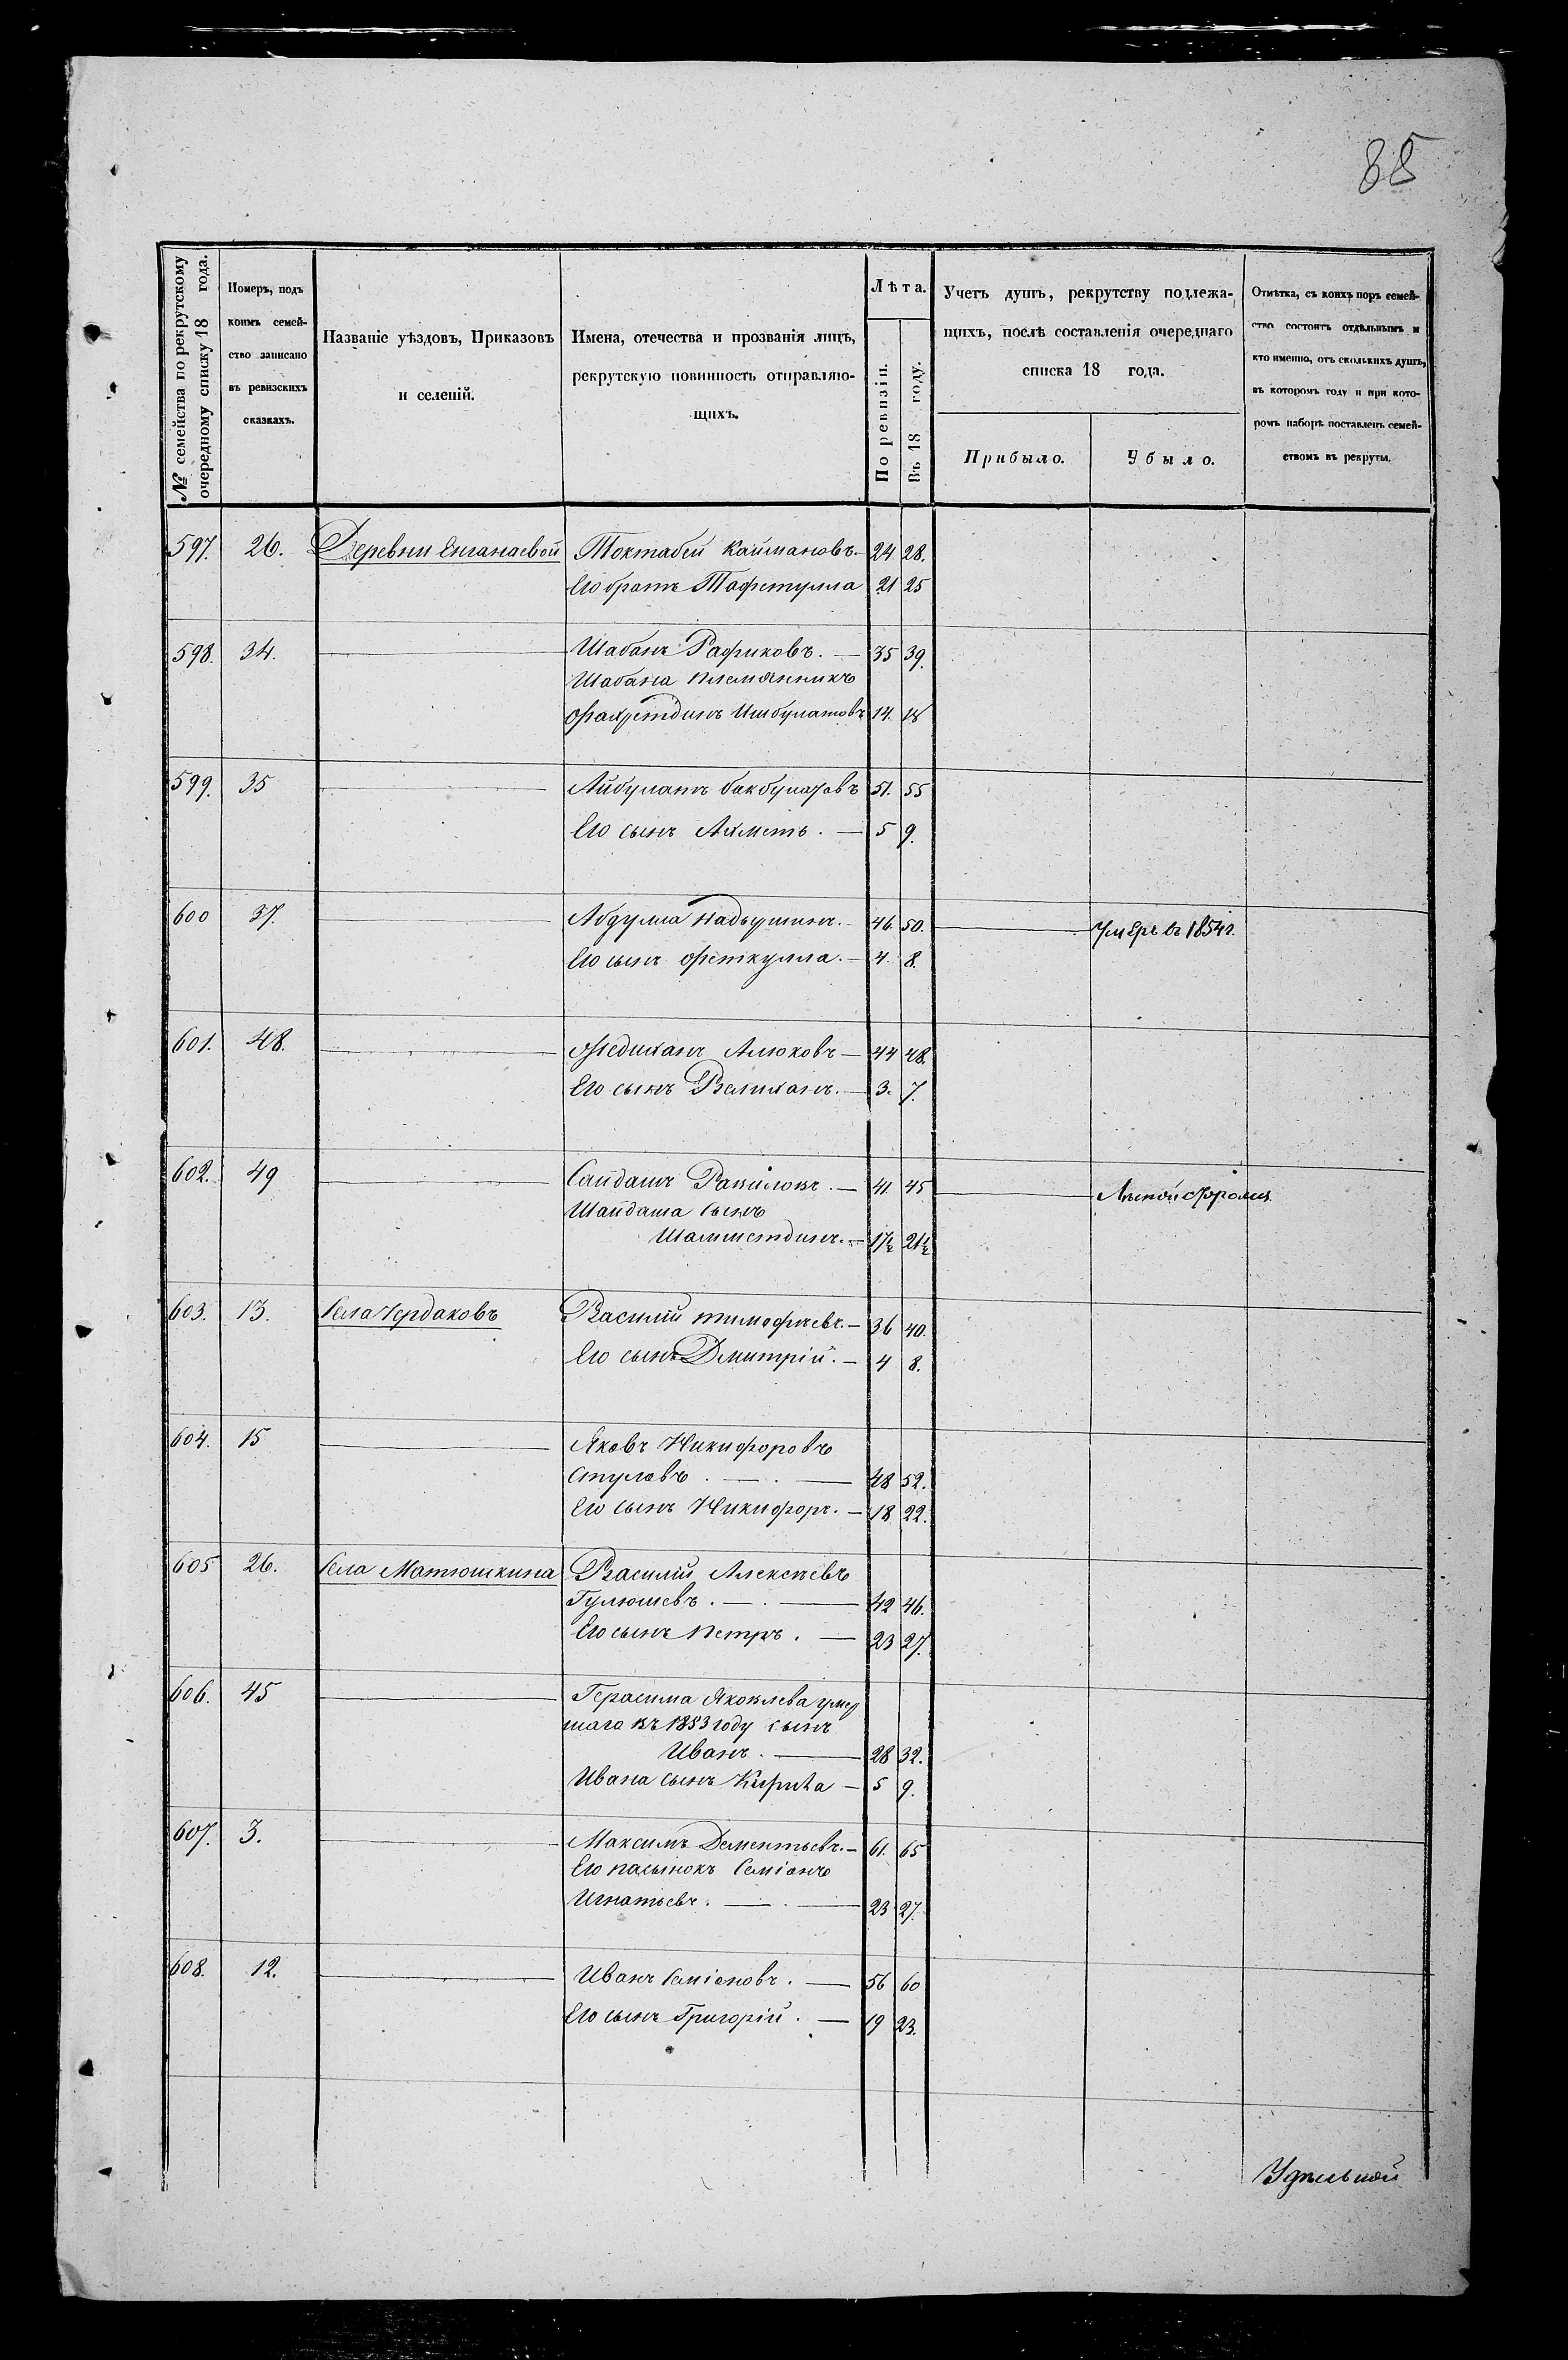 88
№ семейства по рекрутскому очередному списку 18 года.
Номеръ, подъ коимъ семейство записано въ ревизскихъ сказкахъ.
Названіе уѣздовъ, Приказовъ
и селеній.
Имена, отечества и прозванія лицъ,
рекрутскую повинность отправляю-
щихъ.
Лѣта.
По ревизіи.
Въ 18 году.
Учетъ душъ, рекрутству подлежа-
щихъ, послѣ составленія очереднаго
списка 18 года.
Прибыло.
Убыло.
Отмѣтка, съ коихъ поръ семей-
ство состоитъ отдѣльнымъ и
кто именно, отъ сколькихъ душъ,
въ которомъ году и при кото-
ромъ наборѣ поставленъ семей-
ствомъ въ рекруты.
597. 26. Деревни Енганаевой Токтабей Каймановъ. 24 28.
Его братъ Тафетулла 21 25
598. 34. Шабанъ Рафиковъ. 35 39.
Шабана племянникъ
Фахретдинъ Ишбулатовъ 14. 18
599. 35 Айбулатъ Бакбулатовъ 51. 55
Его сынъ Ахметъ. 5 9.
600 37. Абдулла 46. 50. Умеръ въ 1854 г.
Его сынъ Феткулла. 4. 8.
601. 48. Алюковъ 44 48.
Его сынъ Велиханъ. 3. 7.
602. 49 Сайдашъ 41. 45
Шайдаша сынъ
Шамметдинъ. 17½ 21½
603. 13. Села Чердаковъ Василій Тимофѣевъ. 36 40.
Его сынъ Дмитрій. 4 8.
604. 15 Яковъ Никифоровъ
Стуловъ. 48 52.
Его сынъ Никифоръ. 18 22.
605 26. Села Матюшкина Василій Алексѣевъ
Гулюшевъ. 42 46.
Его сынъ Петръ. 23 27.
606. 45 Герасима Яковлева умер
шаго въ 1853 году сынъ
Иванъ. 28 32.
Ивана сынъ Кирила 5 9.
607. 3. Максимъ Дементьевъ. 61. 65
Его пасынокъ Семіонъ
Игнатьевъ. 23 27.
608. 12. Иванъ Семіоновъ. 56 60
Его сынъ Григорій. 19 23.
Удѣльной